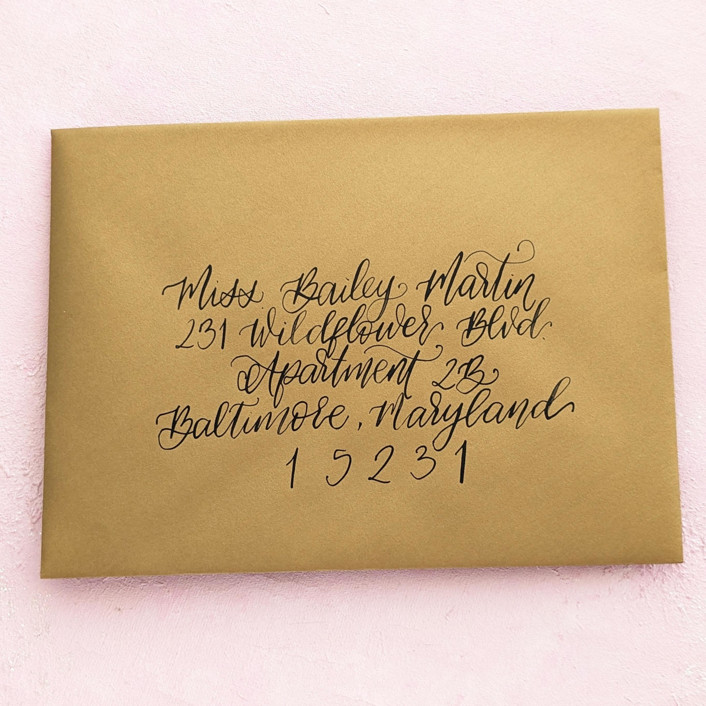 Miss. Bailey Martin
231 Wildflower Blvd.
Apartment 2B
Baltimore, Maryland
15231